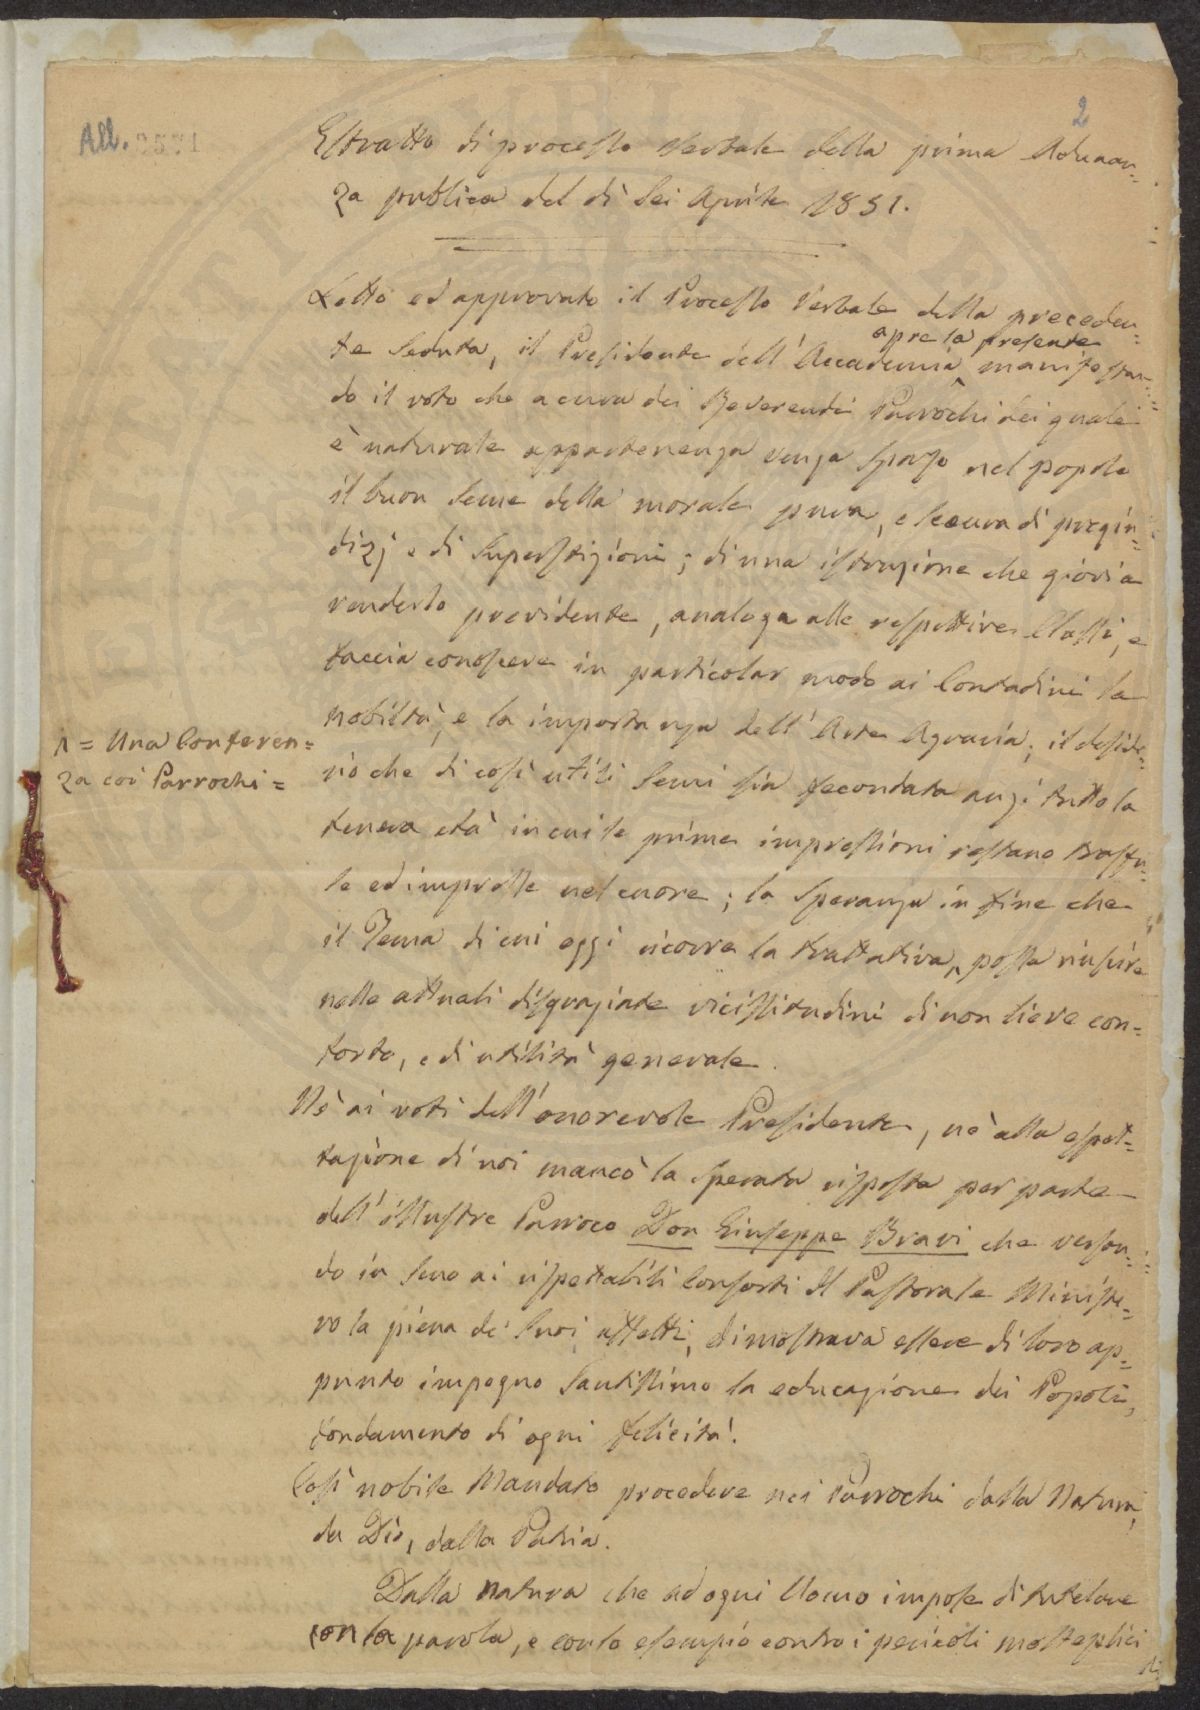 2
All. 2571
Estratto di processo Verbale della prima Adunan=
za publica del dì Sei Aprile 1851.
Letto ed approvato il Processo Verbale della preceden=
te Seduta, il Presidente dell'Accademia apre la presente manifestan=
do il voto che a cura dei Reverendi Parrochi dei quali
è naturale appartenenza venga Sparso nel popolo
il buon Seme della morale pura, e scevra di pregiu=
dizj e di Superstizioni; di una istruzione che giovi a
renderlo previdente, analoga alle respettive Classi, e
faccia conoscere in particolar modo ai Contadini la
nobiltà, e la importanza dell'Arte Agraria; il deside=
rio che di così utili Semi sia fecondata anzi tutto la
tenera età in cui le prime impressioni restano trasfu=
se ed impresse nel cuore; la Speranza in fine che
il Tema di cui oggi ricorre la trattativa, possa riuscire
nelle attuali disgraziate vicissitudini di non lieve con=
forto, e di utilità generale.
1 = Una Conferen=
za coi Parrochi =
Nè ai voti dell'onorevole Presidente, nè alla espet=
tazione di noi mancò la sperata risposta per parte
dell'illustre Parroco Don Giuseppe Bravi che versan=
do in Seno ai rispettabili Consorti il Pastorale Ministe=
ro la piena de' Suoi affetti, dimostrava essere di loro ap=
punto impegno Santissimo la educazione dei Popoli,
fondamento di ogni felicità.
Così nobile Mandato procedere nei Parrochi dalla Natura,
da Dio, dalla Patria.
Dalla Natura che ad ogni Uomo impose di tutelare
con la parola, e con lo esempio contro i pericoli molteplici